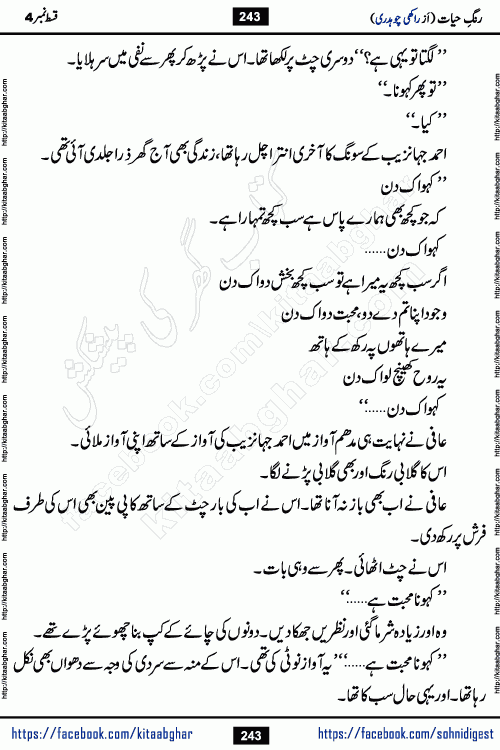 رنگِ حیات (از راکھی چوہدری) 243 قسط نمبر 4
”لگتا تو یہی ہے؟“ دوسری چٹ پر لکھا تھا۔ اس نے پڑھ کر پھر سے نفی میں سر ہلایا۔
”تو پھر کہو نا۔“
”کیا۔“
احمد جہانزیب کے سونگ کا آخری انترا چل رہا تھا، زندگی بھی آج گھر ذرا جلدی آئی تھی۔
”کہو اک دن
کہ جو کچھ بھی ہمارے پاس ہے سب کچھ تمہارا ہے۔
کہو اک دن......
اگر سب کچھ یہ میرا ہے تو سب کچھ بخش دو اک دن
وجود اپنا تم دے دو، محبت دو اک دن
میرے ہاتھوں پہ رکھ کے ہاتھ
یہ روح کھینچ لو اک دن
کہو اک دن......“
عافی نے نہایت ہی مدھم آواز میں احمد جہانزیب کی آواز کے ساتھ اپنی آواز ملائی۔
اس کا گلابی رنگ اور بھی گلابی پڑنے لگا۔
عافی نے اب بھی باز نہ آنا تھا۔ اس نے اب کی بار چٹ کے ساتھ کاپی پین بھی اس کی طرف
فرش پر رکھ دی۔
اس نے چٹ اٹھائی۔ پھر سے وہی بات۔
”کہو نا محبت ہے......“
وہ اور زیادہ شرما گئی اور نظریں جھکا دیں۔ دونوں کی چائے کے کپ بنا چھوئے پڑے تھے۔
”کہو نا محبت ہے......“ یہ آواز نوٹی کی تھی۔ اس کے منہ سے سردی کی وجہ سے دھواں بھی نکل
رہا تھا۔ اور یہی حال سب کا تھا۔
https://facebook.com/kitaabghar 243 https://facebook.com/sohnidigest
http://kitaabghar.com
کتاب گھر کی پیشکش
facebook.com/kitaabghar
kitaabghar.com